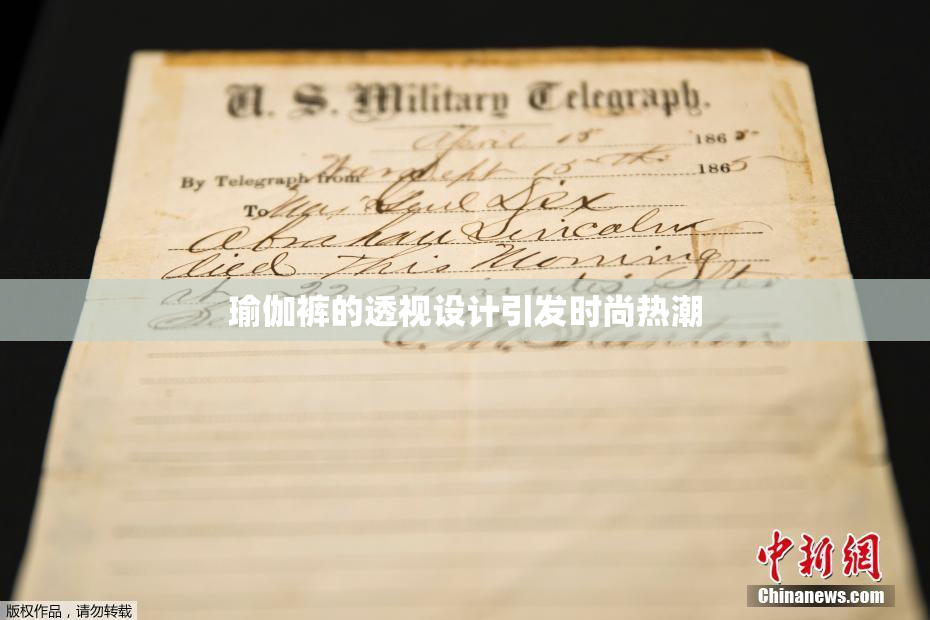 U. S. Military Telegraph.
April 15 1865
By Telegraph from Wash Dept 15th 1865
To Maj Genl Dix
Abraham Lincoln
died This Morning
at 22 minutes after
瑜伽裤的透视设计引发时尚热潮
E. M. Stanton
中新网
Chinanews.com
版权作品，请勿转载